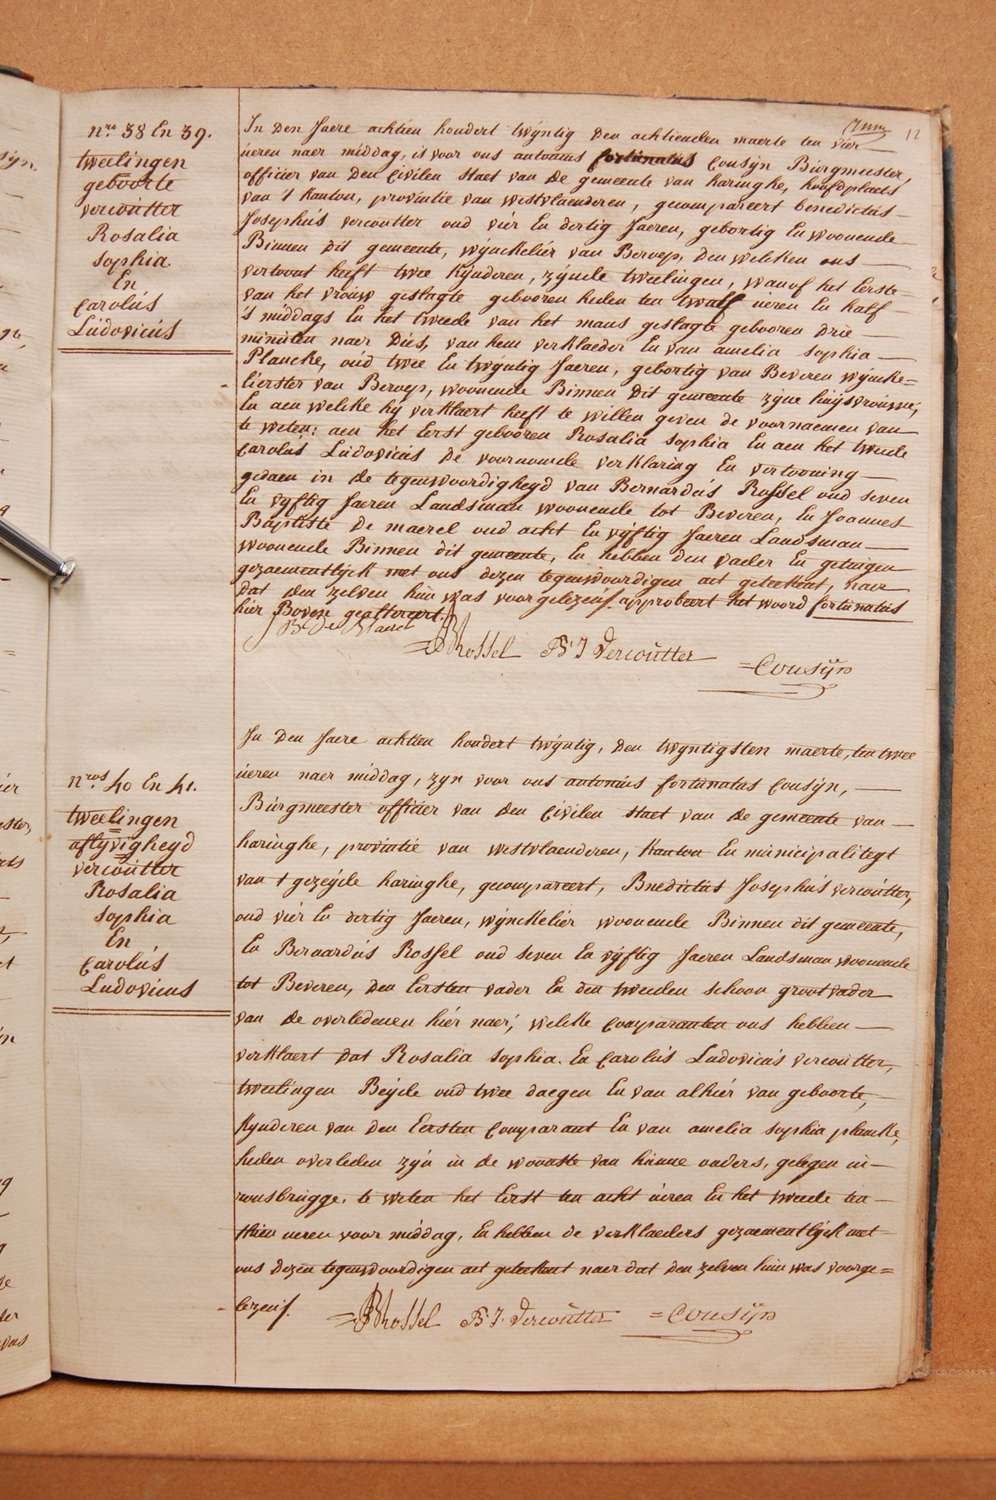 12
nrs 38 En 39.
tweelingen
geboorte
vercoutter
Rosalia
sophia
En
Carolus
Ludovicus
In Den Jaere achtien hondert twyntig Den achtienden maerte ten vier
ueren naer middag, is voor ons antonius fortunatus Cousyn Burgmeester,
officier van Den Civilen staet van de gemeente van haringhe, hoofdplaets
van 't Kanton, provintie van westvlaenderen, gecompareert benedictus
Josephus vercoutter oud vier En dertig Jaeren, gebortig En woonende
Binnen dit gemeente, wynckelier van Beroep, Den welcken ons
vertoont heeft twee Kynderen, zynde tweelingen, wanof het Eerste
van het vrouw geslagte gebooren heden ten twalf ueren En half
's middags En het tweede van het mans geslagte gebooren drie
minuten naer dies, van hem verklaeder En van amelia sophia
Plancke, oud twee En twyntig Jaeren, gebortig van Beveren wyncke=
lierster van Beroep, woonende Binnen dit gemeente zyne huysvrouwe;
En aen welcke hy verklaert heeft te willen geven de voornaemen van
te weten: aen het Eerst gebooren Rosalia sophia En aen het tweede
Carolus Ludovicus de voornomde verklaring En vertooning
gedaen in de tegenwoordigheyd van Bernardus Rossel oud seven
En vyftig Jaeren Landsman woonende tot Beveren, En Joannes
Baptiste De maerel oud acht En vyftig Jaeren Landsman
woonende Binnen dit gemeente, En hebben den vader En getuigen
gezaementlyck met ons dezen tegenwoordigen act geteekent, naer
dat den zelven hun was voorgelezen. approbeert het woord fortunatus
hier Boven gealtereert.
BRossel B: J Vercoutter
=Cousijn
nros 40 En 41.
tweelingen
aflyvigheyd
vercoutter
Rosalia
sophia
En
Carolus
Ludovicus
In Den Jaere achtien hondert twyntig, Den twyntigsten maerte, ten twee
ueren naer middag, zyn voor ons antonius fortunatus Cousyn,
Burgmeester officier van den Civilen staet van de gemeente van
haringhe, provintie van westvlaenderen, Kanton En municipalitegt
van t gezeyde haringhe, gecompareert, Bnedictus Josephus vercoutter,
oud vier En dertig Jaeren, wynckelier woonende Binnen dit gemeente,
En Bernardus Rossel oud seven En vyftig Jaeren Landsman woonende
tot Beveren, Den Eersten vader En den tweeden schoon grootvader
van de overledenen hier naer, welcke Comparanten ons hebben
verklaert dat Rosalia sophia En Carolus Ludovicus vercoutter,
tweelingen Beyde oud twee daegen En van alhier van geboorte,
Kynderen van den Eersten Comparant En van amelia sophia plancke,
heden overleden zyn in de woonste van hunne ouders, gelegen in
rousbrugge, te weten het Eerst ten acht ueren En het tweede ten
thien ueren voor middag, En hebben de verklaeders gezaementlyck met
ons dezen tegenwoordigen act geteekent naer dat den zelven hun was voorge=
lezen.
=BRossel B: J. Vercoutter =Cousijn